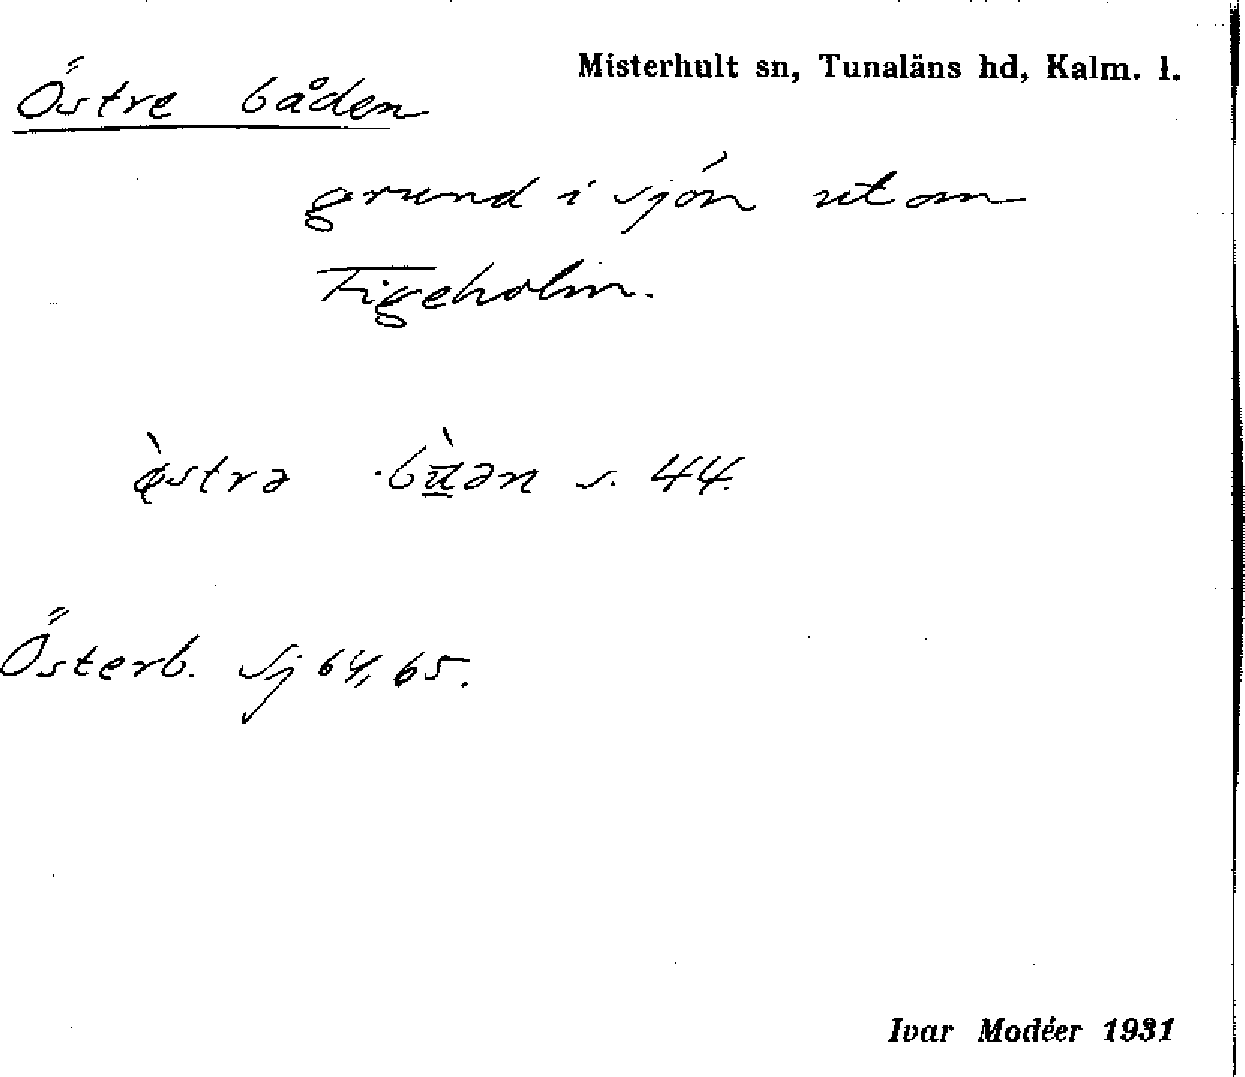 Östre båden
Misterhult sn, Tunaläns hd, Kalm. l.
grund i sjön utom
Figeholm.
s. 44.
Österb. Sj 64, 65.
Ivar Modéer 1931